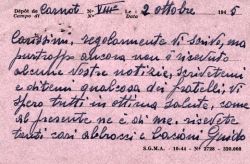 Dépôt de Carnot N° VIII° Le 2 ottobre 1945
Campo di N° Data
Carissimi, regolarmente vi scrivo, ma
purtroppo ancora non ò ricevuto
alcune vostre notizie, scrivetemi
e ditemi qualcosa dei fratelli; vi
spero tutti in ottima salute, come
al presente ne è di me, ricevete
tanti cari abbracci e bacioni Guido
S.G.M.A. 10-44 N° 2728 - 320.000